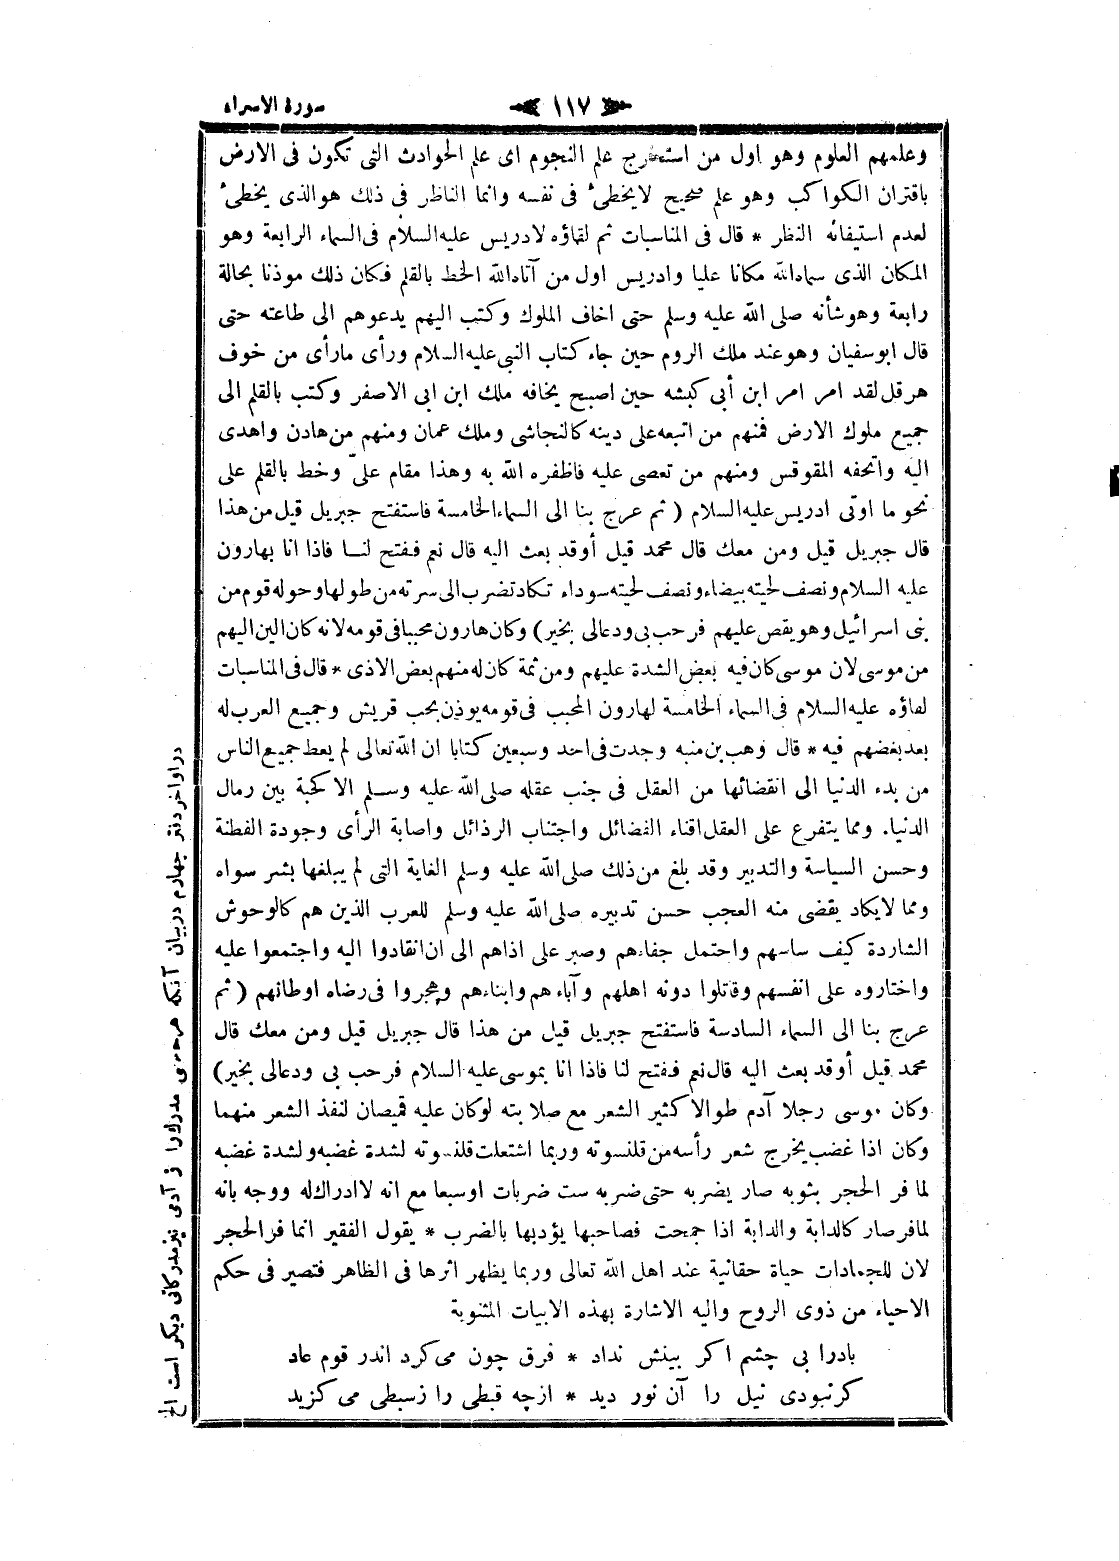 سورة الاسراء
١١٧
وعلمهم العلوم وهو اول من استخرج علم النجوم اى علم الحوادث التى تكون فى الارض
باقتران الكواكب وهو علم صحيح لايخطئ فى نفسه وانما الناظر فى ذلك هوالذى يخطئ
لعدم استيفائه النظر * قال فى المناسبات ثم لقاؤه لادريس عليه السلام فى السماء الرابعة وهو
المكان الذى سماه الله مكانا عليا وادريس اول من آتاه الله الخط بالقلم فكان ذلك موذنا بحالة
رابعة وهو شأنه صلى الله عليه وسلم حتى اخاف الملوك وكتب اليهم يدعوهم الى طاعته حتى
قال ابوسفيان وهو عند ملك الروم حين جاء كتاب النبى عليه السلام ورأى مارأى من خوف
هرقل لقد امر امر ابن أبى كبشه حين اصبح يخافه ملك ابن ابى الاصفر وكتب بالقلم الى
جميع ملوك الارض فمنهم من اتبعه على دينه كالنجاشى وملك عمان ومنهم من هادن واهدى
اليه واتحفه المقوقس ومنهم من تعصى عليه فاظفره الله به وهذا مقام علىّ وخط بالقلم على
نحو ما اوتى ادريس عليه السلام ( ثم عرج بنا الى السماء الخامسة فاستفتح جبريل قيل من هذا
قال جبريل قيل ومن معك قال محمد قيل أوقد بعث اليه قال نعم ففتح لنا فاذا انا بهارون
عليه السلام ونصف لحيته بيضاء ونصف لحيته سوداء تكاد تضرب الى سرته من طولها وحوله قوم من
بنى اسرائيل وهو يقص عليهم فرحب بى ودعالى بخير) وكان هارون محببا فى قومه لانه كان الين اليهم
من موسى لان موسى كان فيه بعض الشدة عليهم ومن ثمة كان له منهم بعض الاذى * قال فى المناسبات
لقاؤه عليه السلام فى السماء الخامسة لهارون المحبب فى قومه يوذن بحب قريش وجميع العرب له
بعد بغضهم فيه * قال وهب بن منبه وجدت فى احد وسبعين كتابا ان الله تعالى لم يعط جميع الناس
من بدء الدنيا الى انقضائها من العقل فى جنب عقله صلى الله عليه وسلم الا كحبة بين رمال
الدنيا. ومما يتفرع على العقل اقناء الفضائل واجتناب الرذائل واصابة الرأى وجودة الفطنة
وحسن السياسة والتدبير وقد بلغ من ذلك صلى الله عليه وسلم الغاية التى لم يبلغها بشر سواه
ومما لايكاد يقضى منه العجب حسن تدبيره صلى الله عليه وسلم للعرب الذين هم كالوحوش
الشاردة كيف ساسهم واحتمل جفاءهم وصبر على اذاهم الى ان انقادوا اليه واجتمعوا عليه
واختاروه على انفسهم وقاتلوا دونه اهلهم وآباءهم وابناءهم وهجروا فى رضاه اوطانهم ( ثم
عرج بنا الى السماء السادسة فاستفتح جبريل قيل من هذا قال جبريل قيل ومن معك قال
محمد قيل أوقد بعث اليه قال نعم ففتح لنا فاذا انا بموسى عليه السلام فرحب بى ودعالى بخير)
وكان موسى رجلا آدم طوالا كثير الشعر مع صلابته لوكان عليه قميصان لنفذ الشعر منهما
وكان اذا غضب يخرج شعر رأسه من قلنسوته وربما اشتعلت قلنسوته لشدة غضبه ولشدة غضبه
لما فر الحجر بثوبه صار يضربه حتى ضربه ست ضربات اوسبعا مع انه لاادراك له ووجه بانه
لمافر صار كالدابة والدابة اذا جمحت فصاحبها يؤدبها بالضرب * يقول الفقير انما فر الحجر
لان للجمادات حياة حقانية عند اهل الله تعالى وربما يظهر اثرها فى الظاهر فتصير فى حكم
الاحياء من ذوى الروح واليه الاشارة بهذه الابيات المثنوية
بادرا بى چشم اكر بينش نداد * فرق چون مى كرد اندر قوم عاد
كرنبودى نيل را آن نور ديد * ازچه قبطى را زسبطى مى كزيد
در اواخر دفتر چهارم دربيان آنكه هر حس مدرك را از آدمى نيز مدركاتى ديكر است الخ